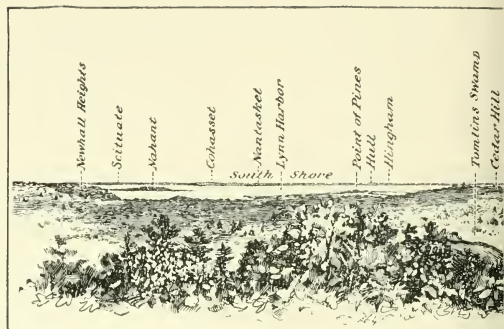 Newhall Heights
Scituate
Nahant
Cohasset
Nantasket
Lynn Harbor
Point of Pines
Hull
Hingham
Tomlins Swamp
Cedar Hill
South Shore